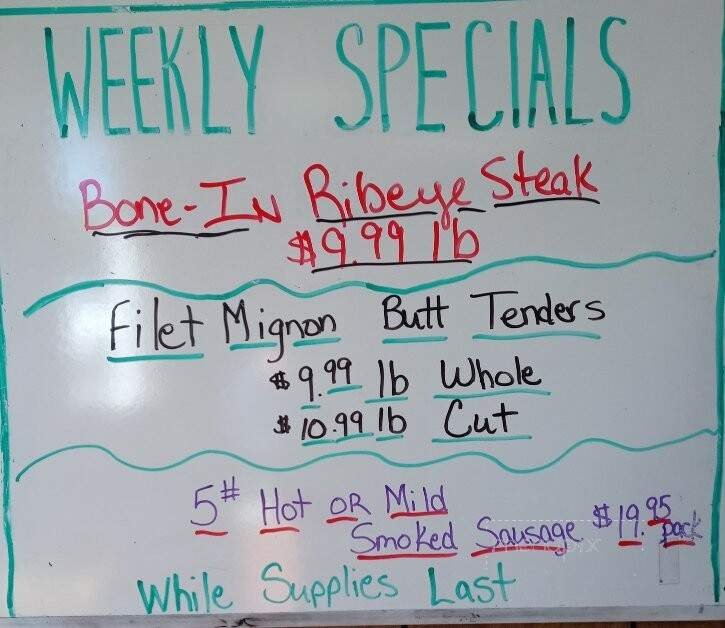 WEEKLY SPECIALS
Bone-In Ribeye Steak
$9.99 lb
Filet Mignon Butt Tenders
$9.99 lb Whole
$10.99 lb Cut
5# Hot OR Mild
Smoked Sausage $19.95 pack
While Supplies Last